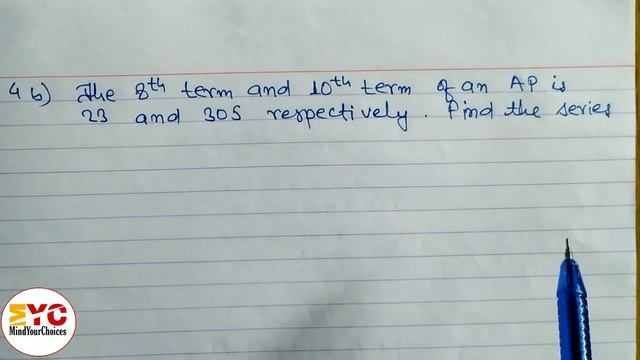 4 b) The 8th term and 10th term of an AP is
23 and 305 respectively. Find the series
MYC
MindYourChoices